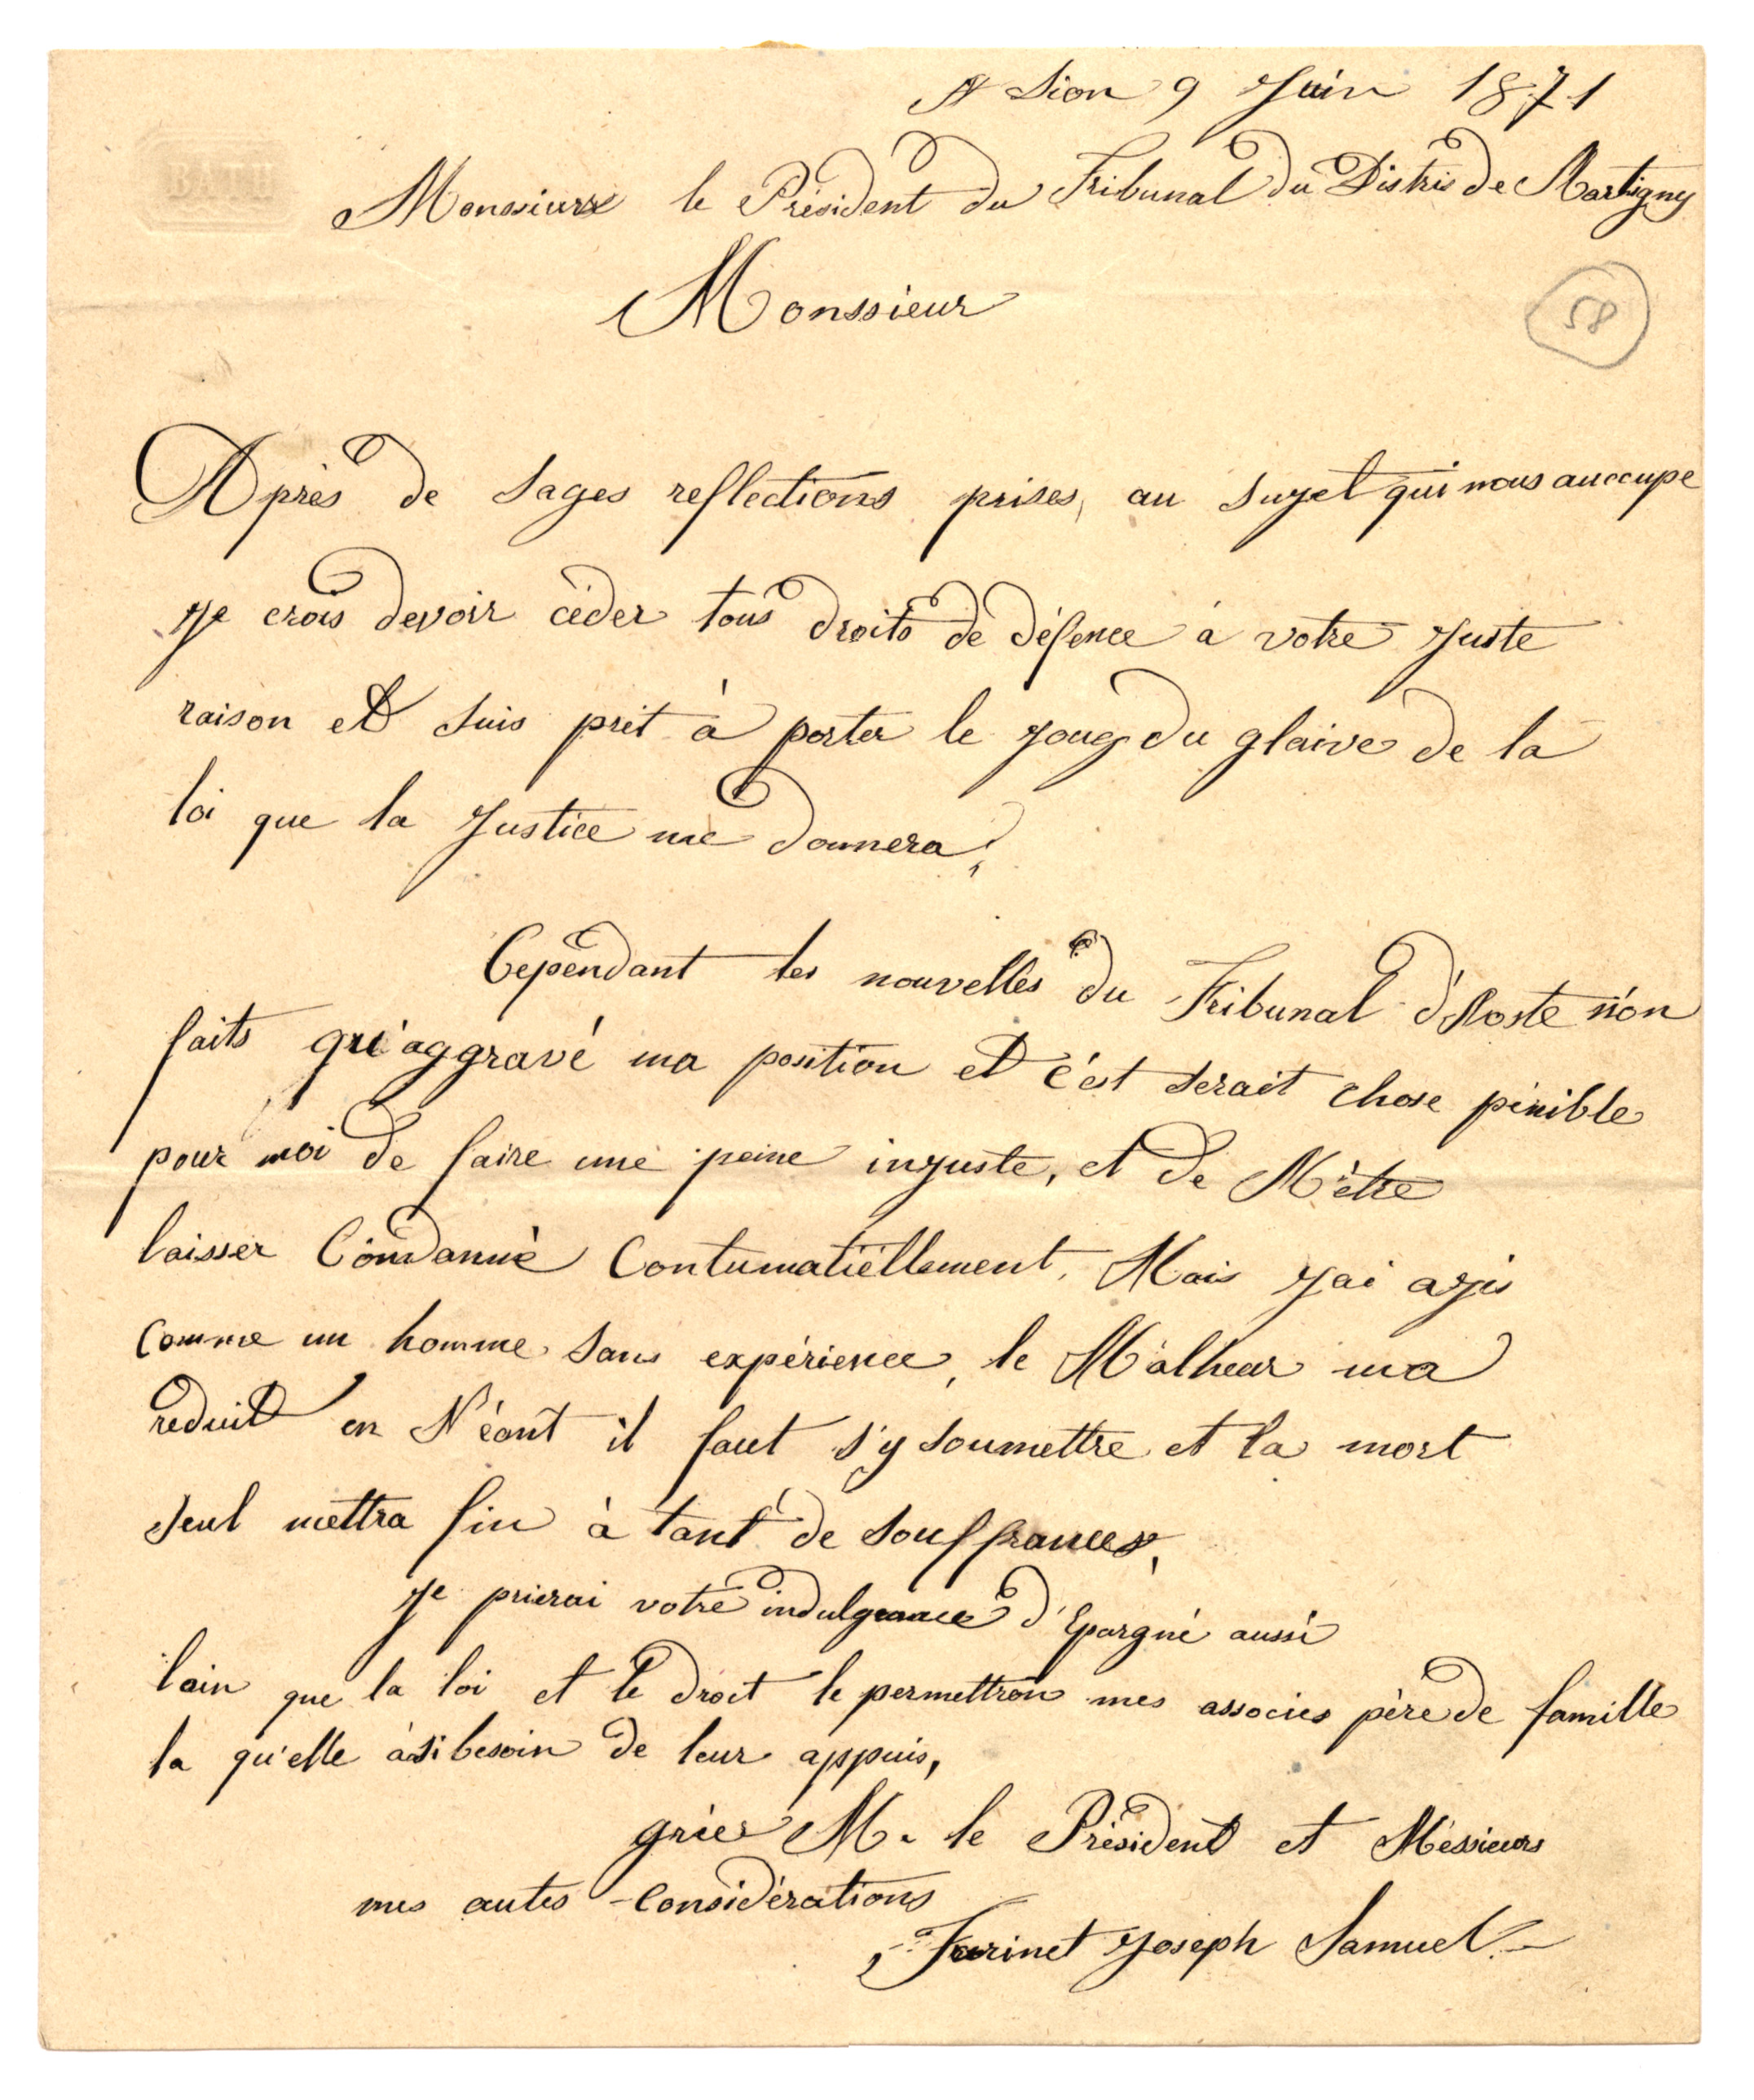 A Sion 9 Juin 1871
Monssieurx le Président du Tribunal du Distris de Martigny
Monssieur
58
Après de sages reflections prises, au sujet qui nous auccupe
Je crois devoir cèder tous droits de défence à votre Juste
raison et suis prêt à porter le joug du glaive de la
loi que la Justice me donnera,
Cependant les nouvelles du Tribunal d'Aoste n'on
faits qu'aggravé ma position et c'est serait chose pinible
pour moi de faire une peine injuste, et de M'être
laisser Condanné Contumatiellement, Mais J'ai agis
Comme un homme sans expérience, le Malheur ma
reduit en Néant il faut s'y soumettre et la mort
seul mettra fin à tant de souffrances,
Je prierai votre indulgeance d'Epargné aussi
loin que la loi et le droit le permettron mes associés père de famille
la qu'elle à si besoin de leur appuis,
grèes M. le Président et Messieurs
mes autes considérations
Farinet Joseph Samuel